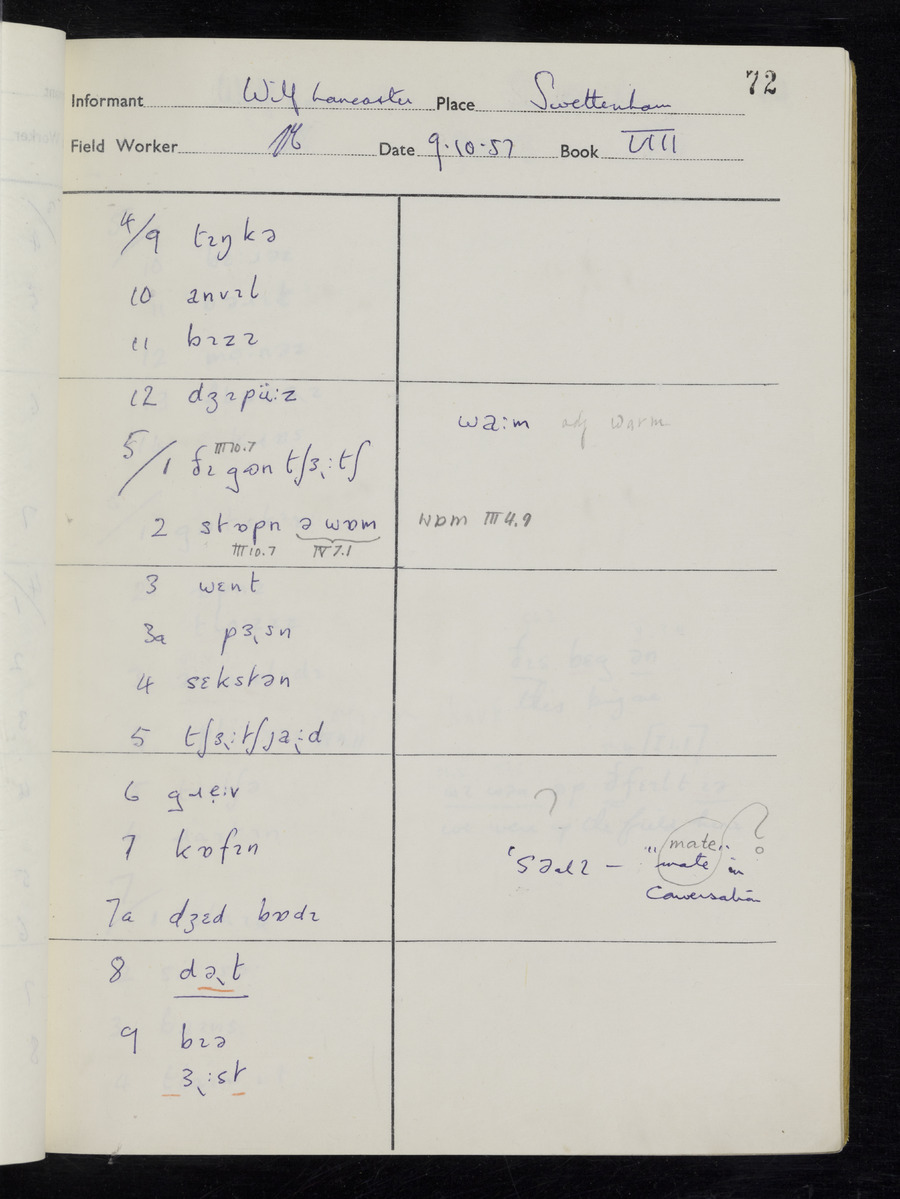 72
Informant Wilf Lancaster Place Swettenham
Field Worker Date 9·10·57 Book VIII
4/9 tɪŋkə
10 anvɪl
11 bɪzɪ
12 dʒɪpüːz
waːm adj warm
III 10.7
5/1 ðɪ gɒn tʃɜ˞ːtʃ
2 stɒpn ə wɒm wɒm III 4.9
III 10.7 IV 7.1
3 wɛnt
3a pɜ˞sn
4 sɛkstən
5 tʃɜ˞ːtʃjaːd
6 gɹẹːv
7 kɒfɪn
'səɹɪ – "mate" in ?
mate
Conversation
7a dʒɛd bɒdɪ
8 də˞t
9 bɪə
ɜ˞ːst